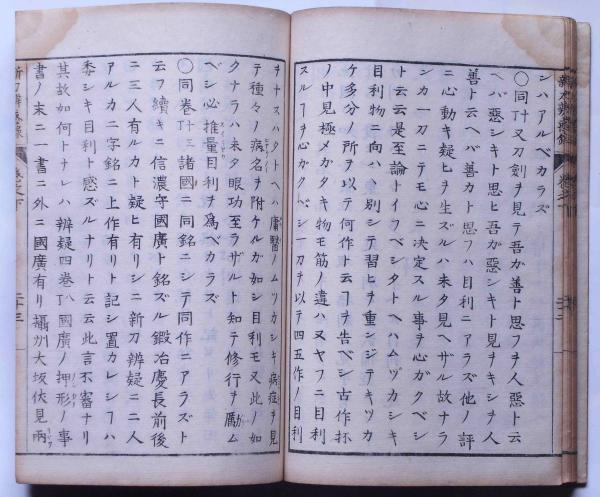 ンハアルベカラズ
〇同廿又刀劍ヲ見テ吾ガ善ト思フヲ人惡ト云
ヘバ惡シキト思ヒ吾ガ惡シキト見ヲキシヲ人
善ト云ヘバ善カト思フハ目利ニアラズ他ノ評
ニ心動キ疑ヒヲ生ズルハ未タ見ヘザル故ナラ
ンカ一刀ニテモ心ニ決定スル事ヲ心ガクベシ
ト云云是至論トイフベシタトヘハムツカシキ
目利物ニ向ハ
金別シテ習ヒヲ重シジテキツカ
ケ多分ノ所ヲ以テ何作ト云フヲ告ベシ古作抔
ノ中見極メガタキ物モ筋ノ違ハ又ヤフニ目利
スルフヲ心ガクベシ一刀ヲ以テ四五作ノ目利
ヲナスハタトヘハ庸醫ノムツカシキ病症ヲ見
テ種々ノ病名ヲ附ケルガ如シ目利モ又此ノ如
クナラハ未タ眼功至ラザルト知テ修行ヲ勵ム
ベシ心推量目利ヲ為ベカラズ
〇同巻
諸國ニ同銘ニシテ同作ニアラズト
云フ續キニ信濃守國廣ト銘ズル鍛冶慶長前後
ニ三人有ルカト疑ヒ有リシニ新刀辨疑ニ二人
アルカニ字銘ニ上作有リト記シ置カレシフハ
忝シキ目利ト感ズルナリト云云此言不審ナリ
其故如何トナレハ辨疑四巻
國廣ノ押形ノ事
書ノ末ニ一書ニ外ニ國廣有リ攝州大坂伏見兩
新刀辨惑録 巻之下
二十三